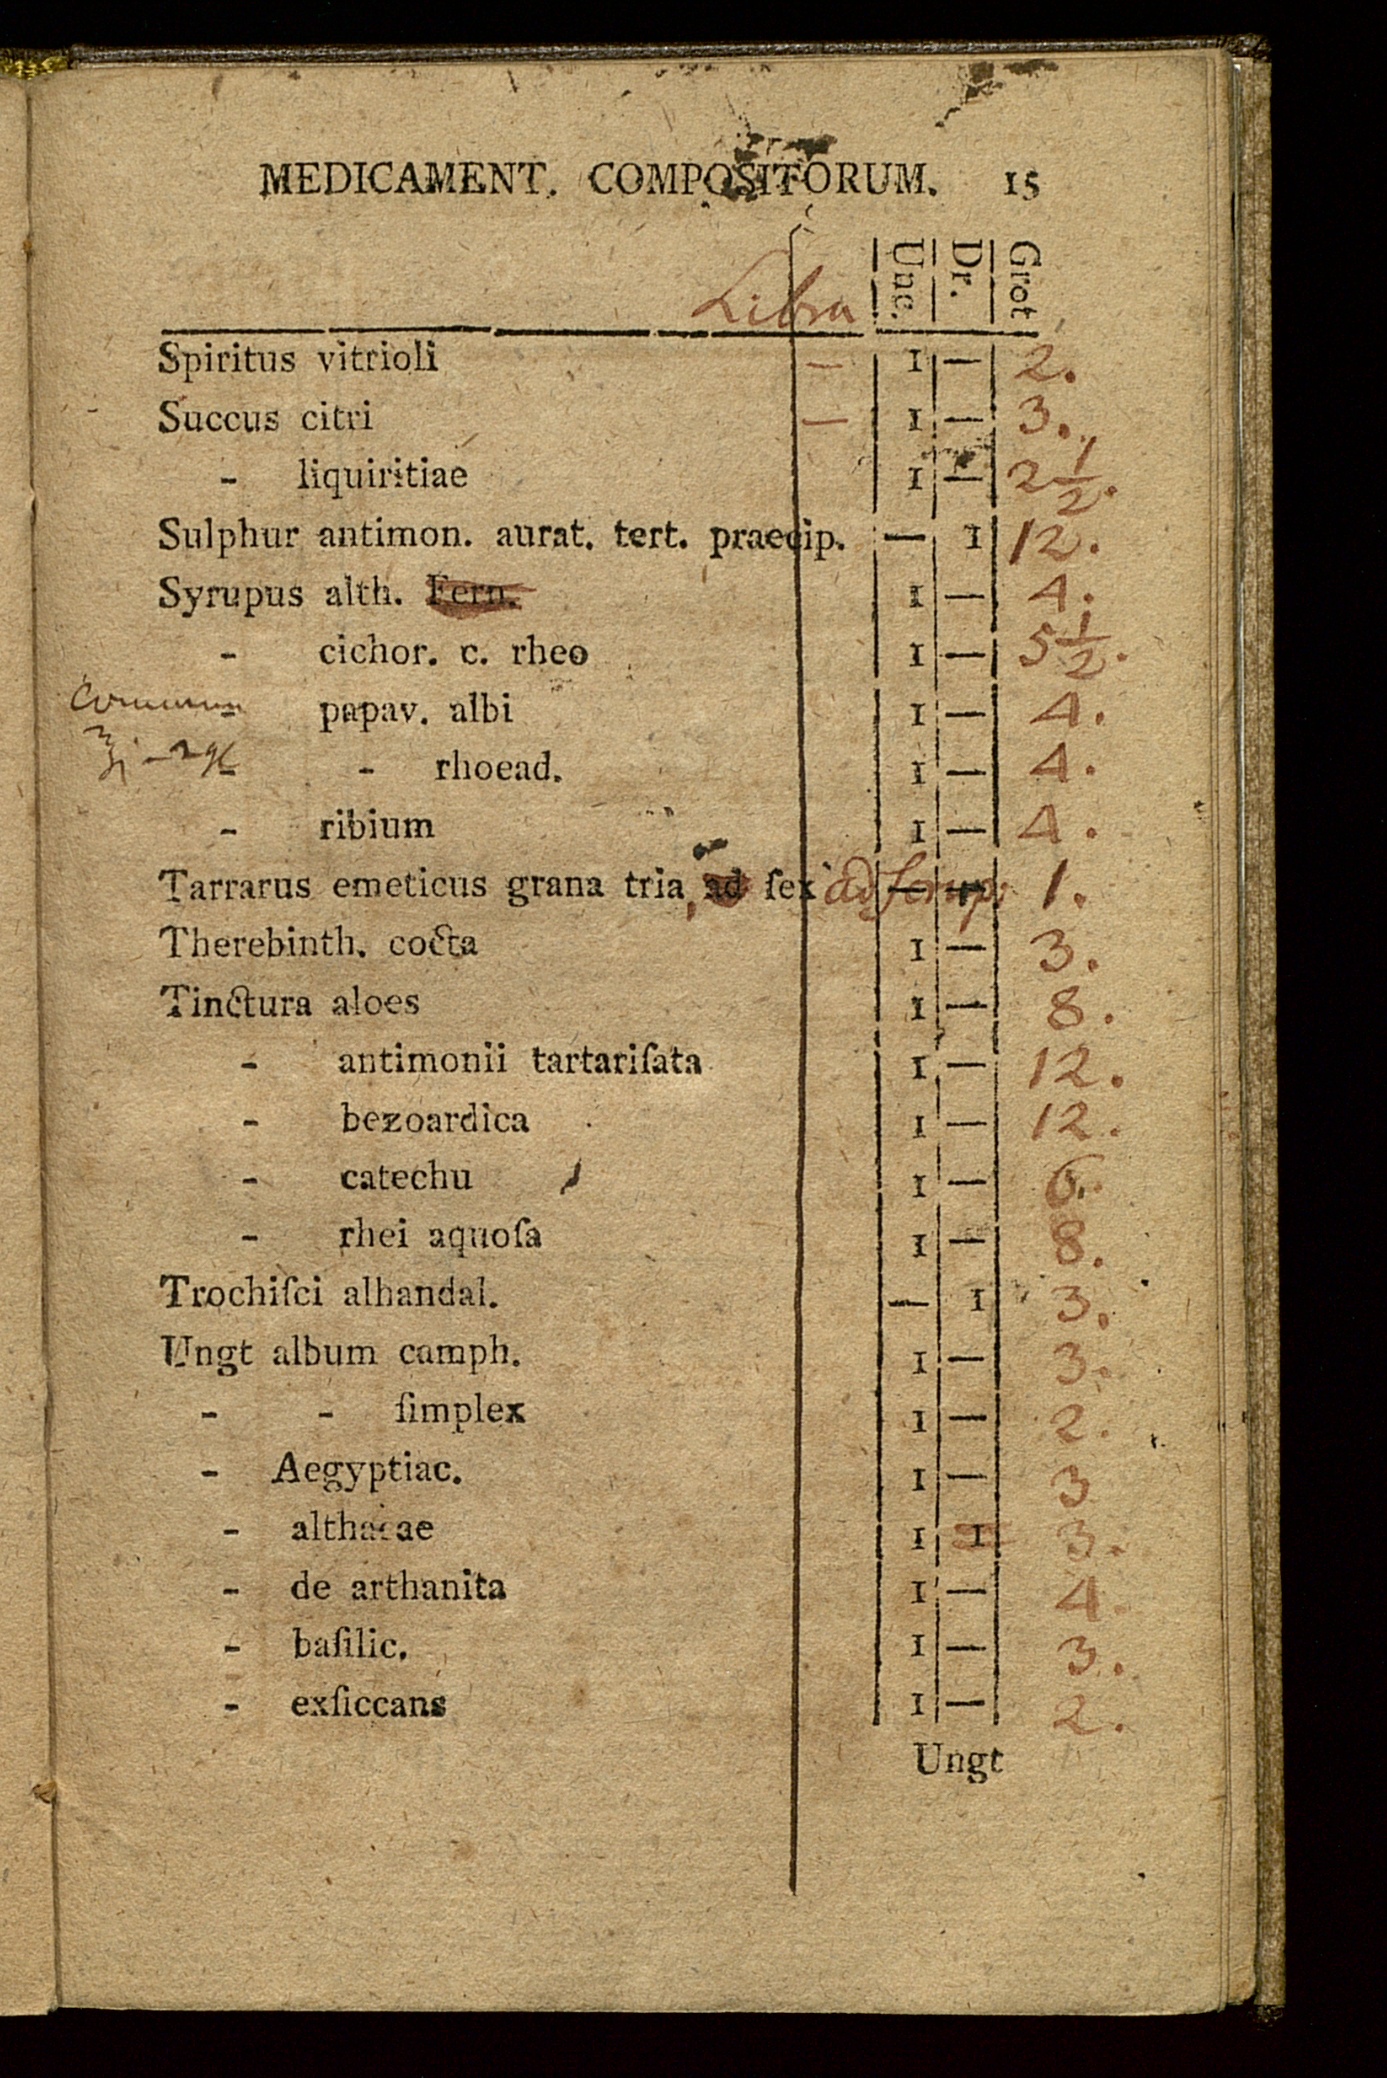 MEDICAMENT. COMPOSITORUM. 15
Libra Unc. Dr. Grot
Spiritus vitrioli — 1 — 2.
Succus citri — 1 — 3.
- liquiritiae 1 — 2 1/2.
Sulphur antimon. aurat. tert. praecip. — 1 12.
Syrupus alth. Fern. 1 — 4.
- cichor. c. rheo 1 — 5 1/2.
- papav. albi 1 — 4.
- - rhoead. 1 — 4.
- ribium 1 — 4.
Tarrarus emeticus grana tria, ad ſex ad — 1.
Therebinth. cocta 1 — 3.
Tinctura aloes 1 — 8.
- antimonii tartariſata 1 — 12.
- bezoardica 1 — 12.
- catechu 1 — 6.
- rhei aquoſa 1 — 8.
Trochiſci alhandal. — 1 3.
Ungt album camph. 1 — 3.
- - ſimplex 1 — 2.
- Aegyptiac. 1 — 3
- althaeae 1 1 3.
- de arthanita 1 — 4.
- baſilic. 1 — 3.
- exſiccans 1 — 2.
Ungt